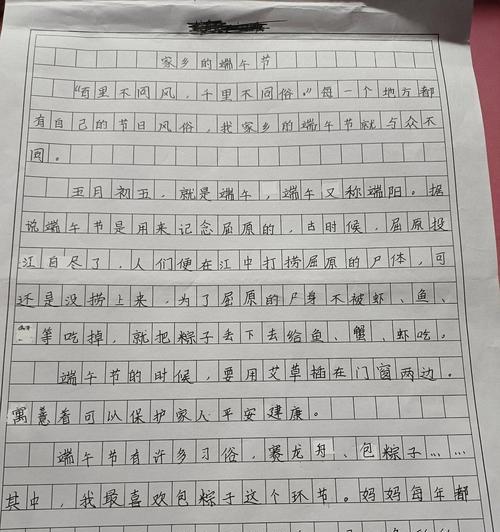 家乡的端午节
“百里不同风，千里不同俗。”每一个地方都
有自己的节日风俗，我家乡的端午节就与众不
同。
五月初五，就是端午，端午又称端阳。据
说端午节是用来记念屈原的，古时候，屈原投
江自尽了，人们便在江中打捞屈原的尸体，可
还是没捞上来，为了屈原的尸身不被虾、鱼、
等吃掉，就把粽子丢下去给鱼、蟹、虾吃。
端午节的时候，要用艾草插在门窗两边。
寓意着可以保护家人平安建康。
端午节有许多习俗，赛龙舟、包粽子……
其中，我最喜欢包粽子这个环节。妈妈每年都